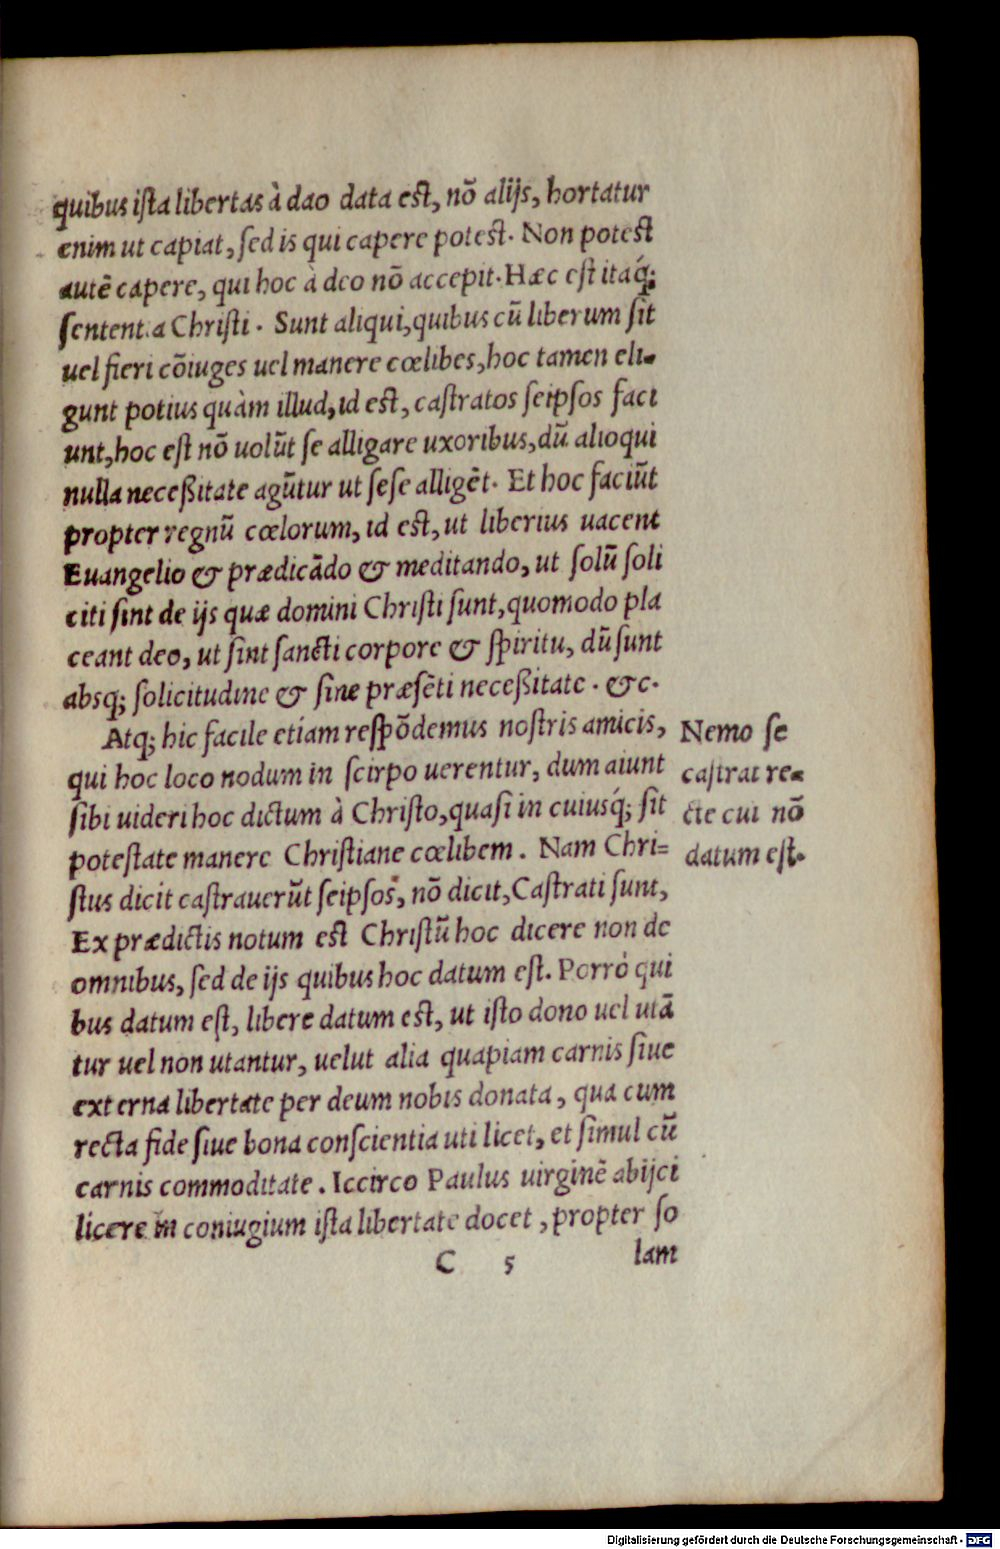 quibus iſta libertas à dao data eſt, nõ alijs, hortatur
enim ut capiat, ſed is qui capere poteſt. Non poteſt
autẽ capere, qui hoc à deo nõ accepit. Hæc eſt itaq́;
ſentent.a Chriſti. Sunt aliqui, quibus cũ liberum ſit
uel fieri cõiuges uel manere cœlibes, hoc tamen eli-
gunt potius quàm illud, id eſt, caſtratos ſeipſos faci
unt, hoc eſt nõ uolũt ſe alligare uxoribus, dũ alioqui
nulla neceßitate agũtur ut ſeſe alligẽt. Et hoc faciũt
propter regnũ cœlorum, id eſt, ut liberius uacent
Euangelio & prædicãdo & meditando, ut ſolũ ſoli
citi ſint de ijs quæ domini Chriſti ſunt, quomodo pla
ceant deo, ut ſint ſancti corpore & ſpiritu, dũ ſunt
absq; ſolicitudine & ſine præſẽti neceßitate. &c.
Atq; hic facile etiam reſpõdemus noſtris amicis,
qui hoc loco nodum in ſcirpo uerentur, dum aiunt
ſibi uideri hoc dictum à Chriſto, quaſi in cuiusq́; ſit
poteſtate manere Chriſtiane cœlibem. Nam Chri=
ſtus dicit caſtrauerũt ſeipſos, nõ dicit, Caſtrati ſunt,
Ex prædictis notum eſt Chriſtũ hoc dicere non de
omnibus, ſed de ijs quibus hoc datum eſt. Porrò qui
bus datum eſt, libere datum eſt, ut iſto dono uel utã
tur uel non utantur, uelut alia quapiam carnis ſiue
externa libertate per deum nobis donata, qua cum
recta fide ſiue bona conſcientia uti licet, et ſimul cũ
carnis commoditate. Iccirco Paulus uirginẽ abijci
licere in coniugium iſta libertate docet, propter ſo
C 5 lam
Nemo ſe
caſtrat re-
cte cui nõ
datum eſt.
Digitalisierung gefördert durch die Deutsche Forschungsgemeinschaft - DFG